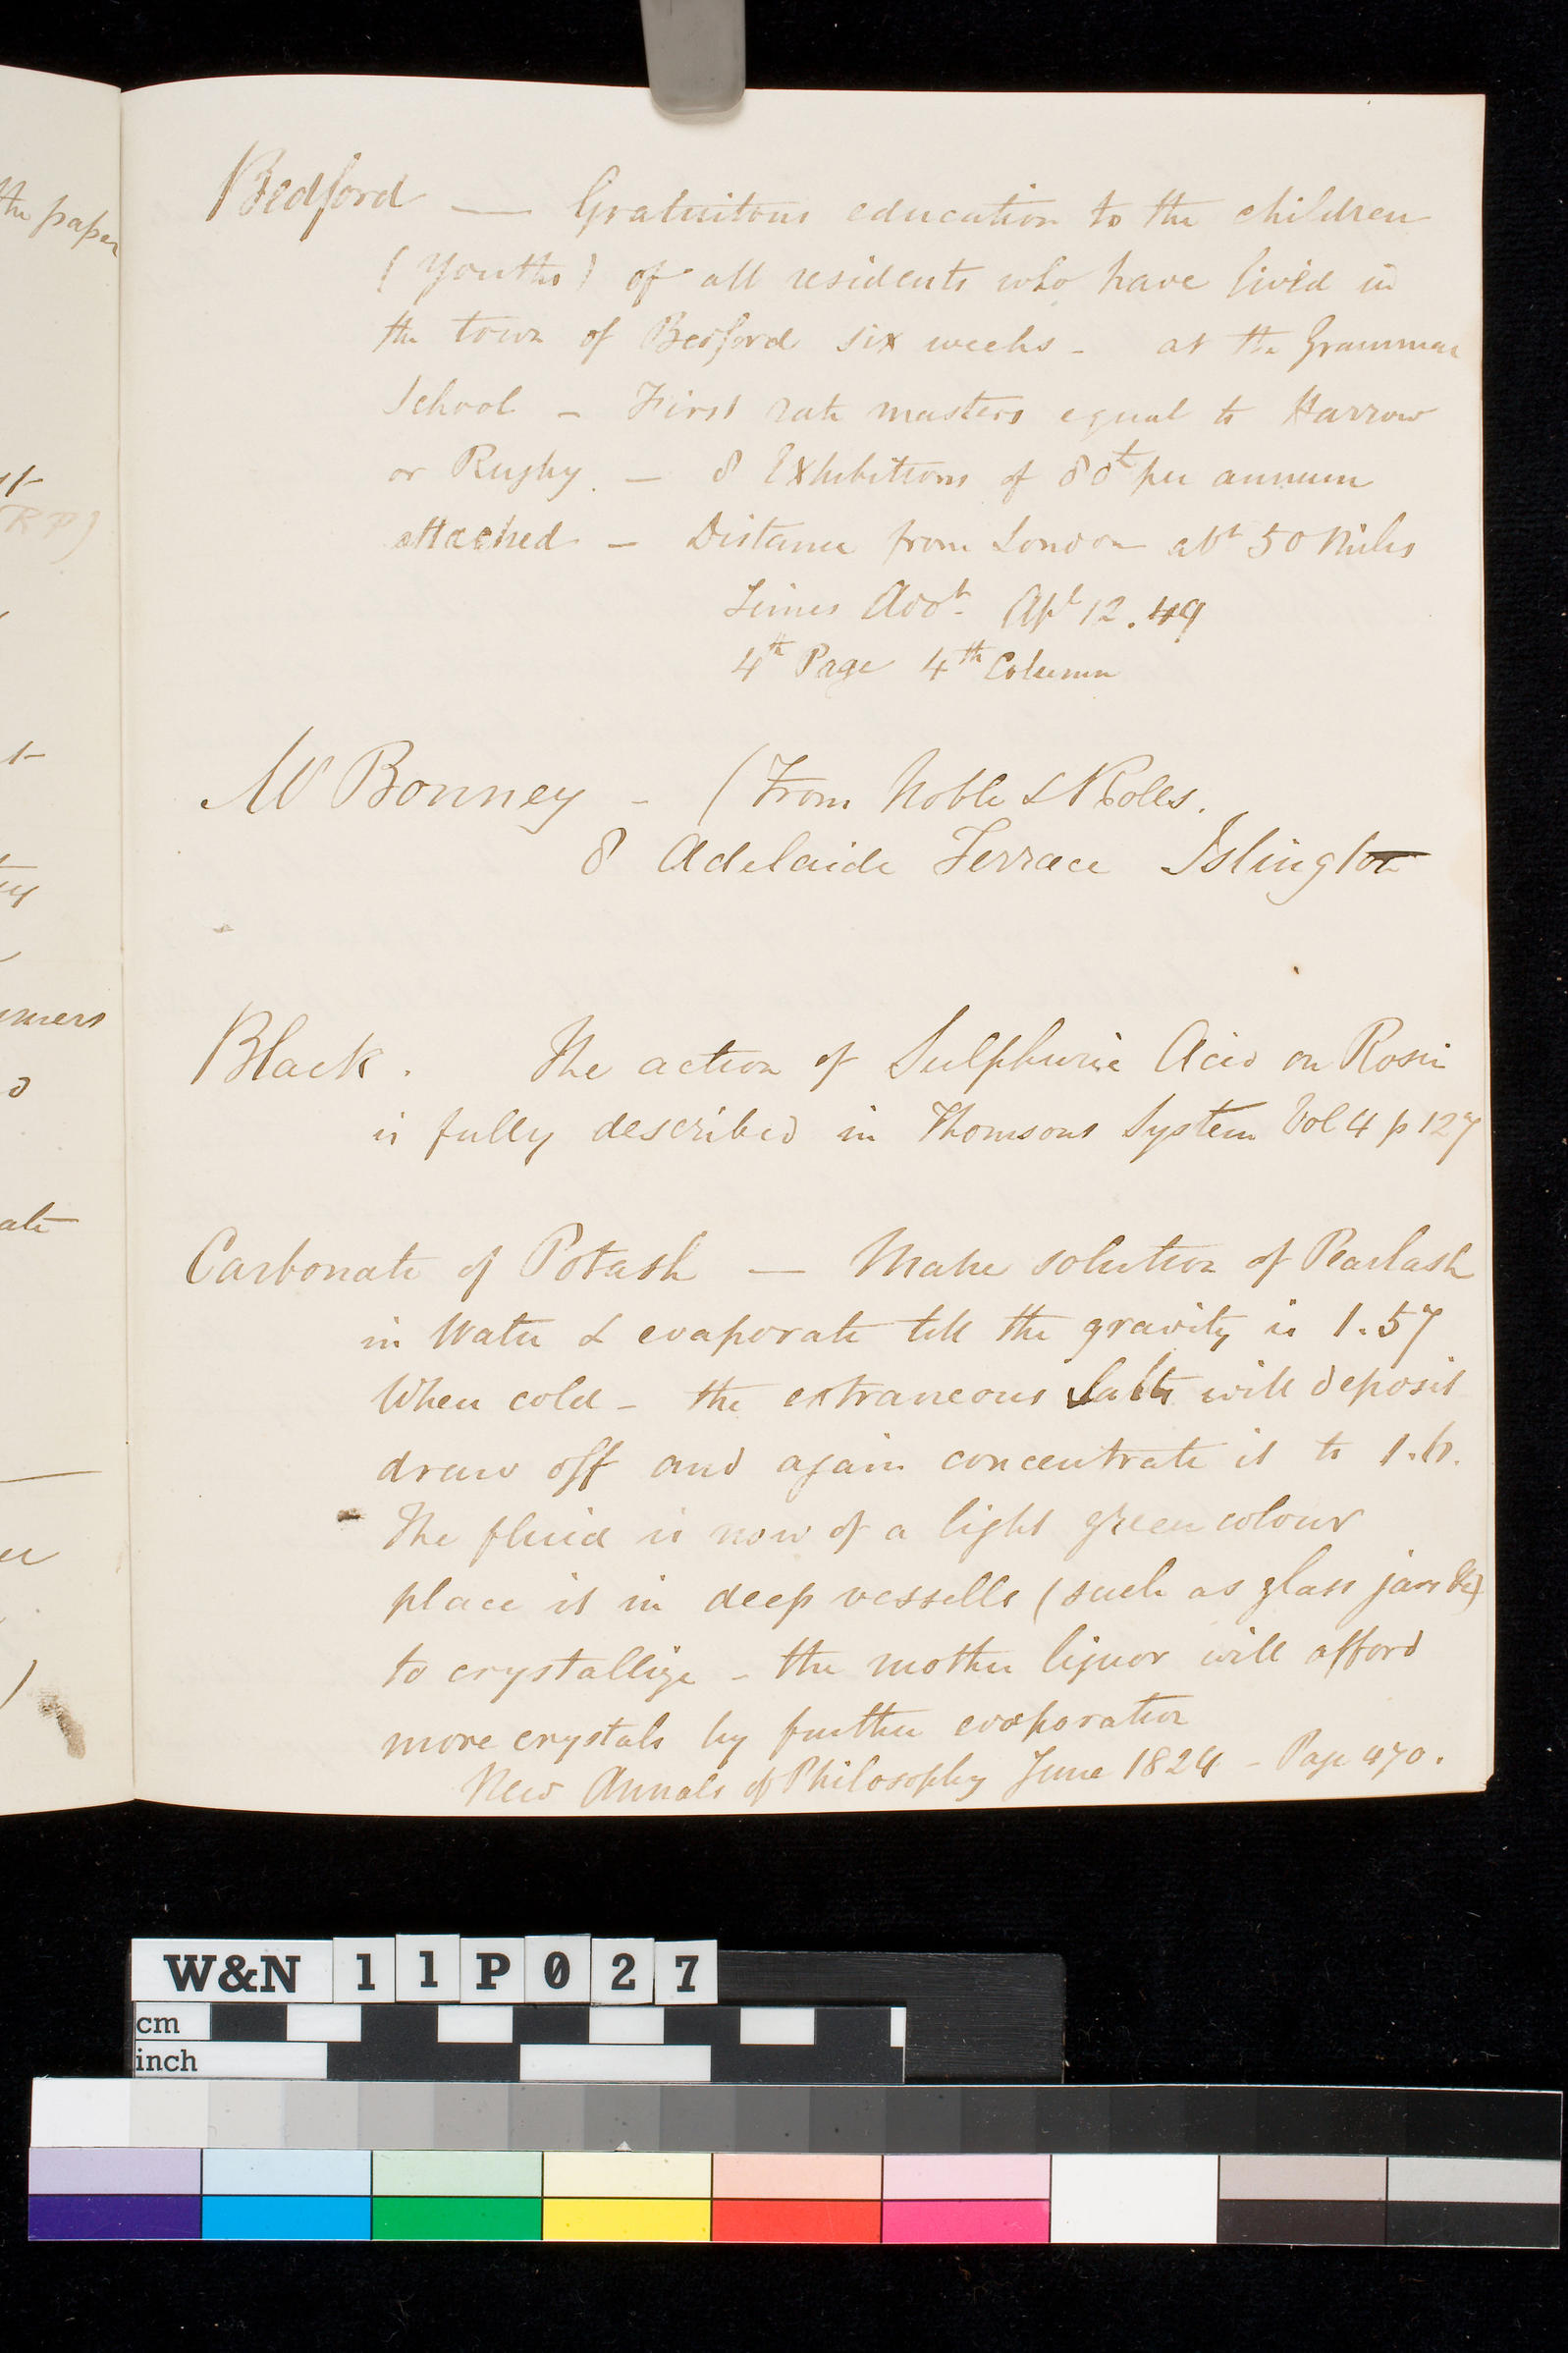 the paper
RP)
Bedford — Gratuitous education to the children
(Youths) of all residents who have lived in
the town of Bedford six weeks - at the Grammar
School - First rate masters equal to Harrow
or Rugby. — 8 Exhibitions of 80£ per annum
attached - Distance from London abt 50 Miles
Times Advt- Apl 12. 49
4th Page 4th Column
Mr Bonney - (From Noble &
8 Adelaide Terrace Islington
Black. The action of Sulphuric Acid on Rosin
is fully described in Thomsons System Vol 4 p 127
Carbonate of Potash — Make solution of Pearlash
in Water & evaporate till the gravity is 1.57
When cold - the extraneous Salts will deposit
draw off and again concentrate it to
The fluid is now of a light green colour
place it in deep vessells (such as glass jars &c)
to crystallize - the mother liquor will afford
more crystals by further evaporation
New Annals of Philosophy June 1824 - Page 470.
W&N 11P027
cm
inch